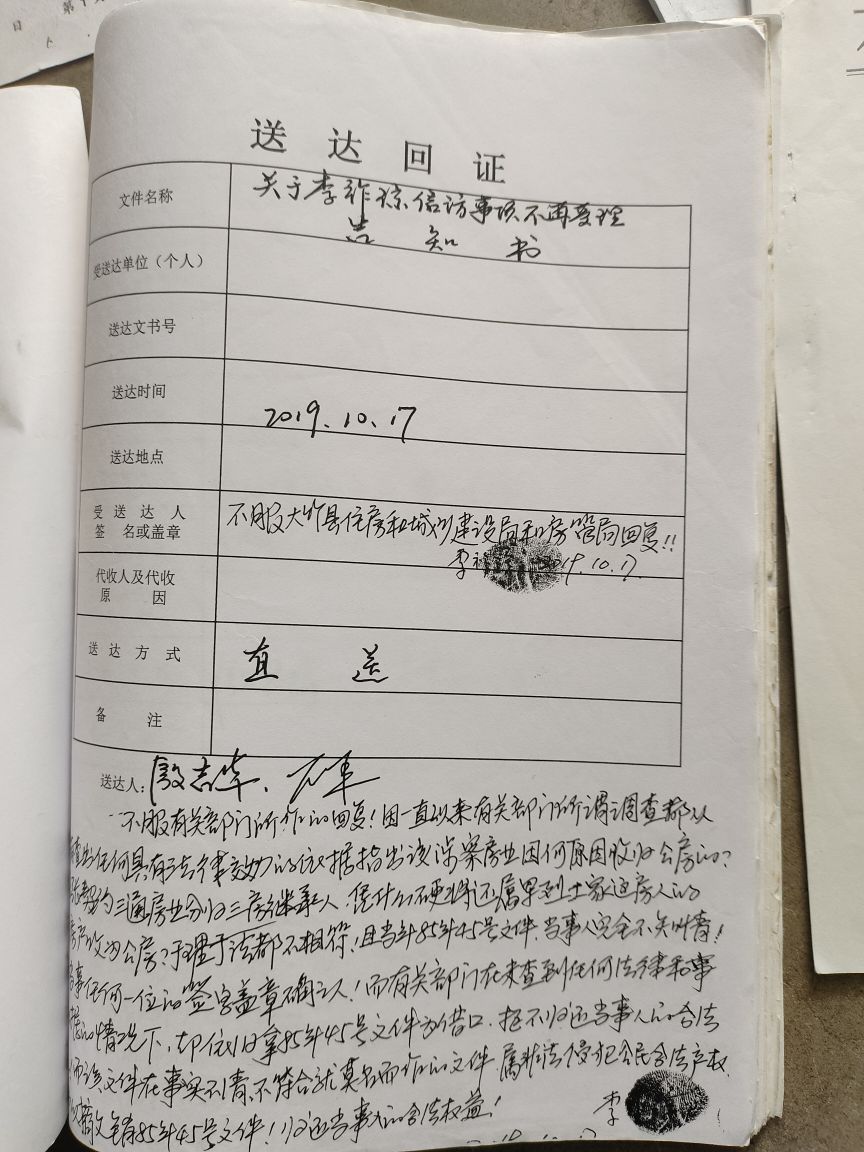 送达回证
文件名称
关于李祚琼信访事项不再受理
告知书
受送达单位(个人)
送达文书号
送达时间
2019.10.17
送达地点
受送达人
签名或盖章
不服大竹县住房和城乡建设局和房管局回复!!
李 2019.10.17.
代收人及代收
原因
送达方式
直送
备注
送达人:
不服有关部门所作的回复!因一直以来有关部门所谓调查都从
查出任何具有法律效力的依据指出该涉案房业因何原因收归公房的?
三图房业分归三房继承人.凭什么硬将不属
房产收为公房?于理于法都不相符!且当年85年45号文件.当事人完全不知情!
事任何一位的签字盖章确认!而有关部门在未查到任何法律和事
情况下,却依旧拿85年45号文件为借口.拒不归还当事人的合法
而该文件在事实不清,不符合就莫名而作的文件.属非法侵犯公民合法产权.
85年45号文件!归还当事人的合法权益!
李